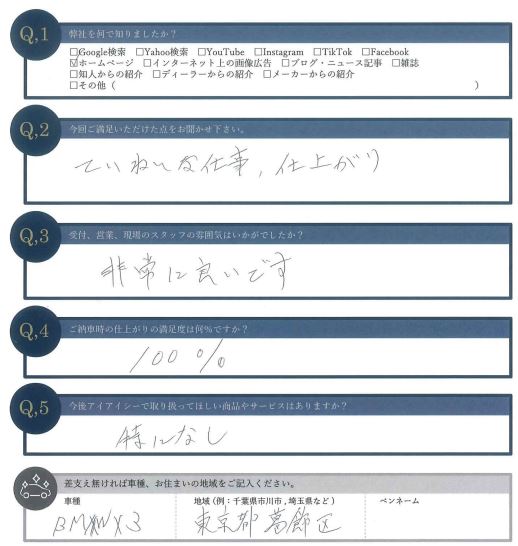 Q,1 弊社を何で知りましたか？
□Google検索 □Yahoo検索 □YouTube □Instagram □TikTok □Facebook
☑ホームページ □インターネット上の画像広告 □ブログ・ニュース記事 □雑誌
□知人からの紹介 □ディーラーからの紹介 □メーカーからの紹介
□その他（ ）
Q,2 今回ご満足いただけた点をお聞かせ下さい。
ていねいな仕事，仕上がり
Q,3 受付、営業、現場のスタッフの雰囲気はいかがでしたか？
非常に良いです
Q,4 ご納車時の仕上がりの満足度は何%ですか？
100%
Q,5 今後アイアイシーで取り扱ってほしい商品やサービスはありますか？
特になし
差支え無ければ車種、お住まいの地域をご記入ください。
車種 地域（例：千葉県市川市，埼玉県など） ペンネーム
BMW X3 東京都葛飾区